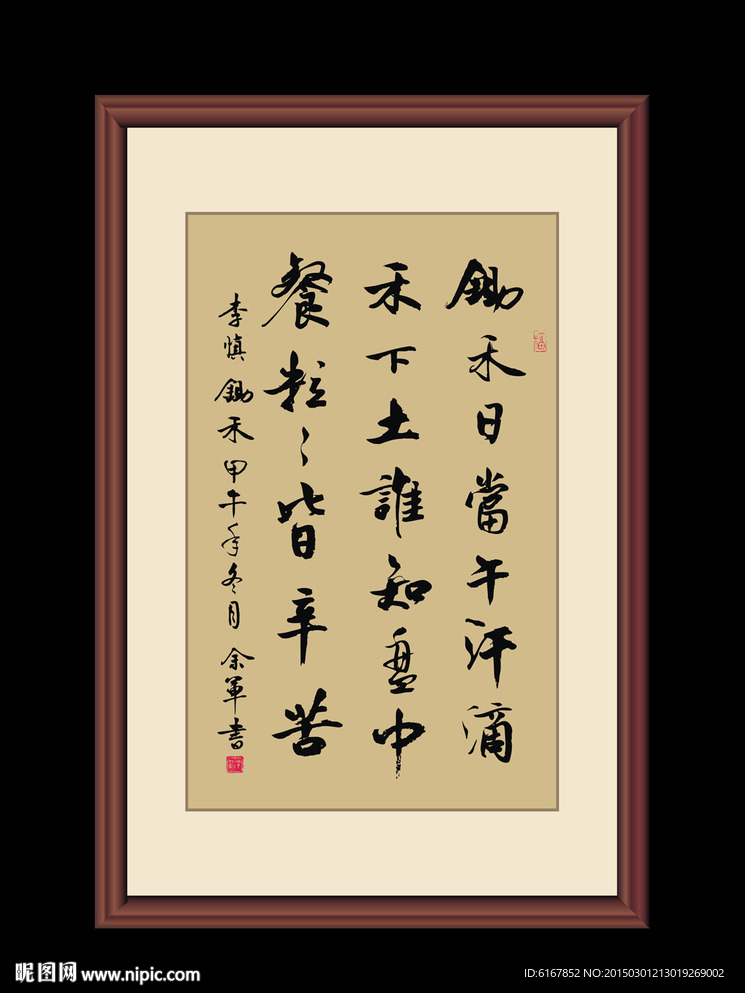 鋤禾日當午汗滴
禾下土誰知盤中
餐粒〻皆辛苦
李慎鋤禾甲午年冬月余軍書
昵图网 www.nipic.com
ID:6167852 NO:20150301213019269002